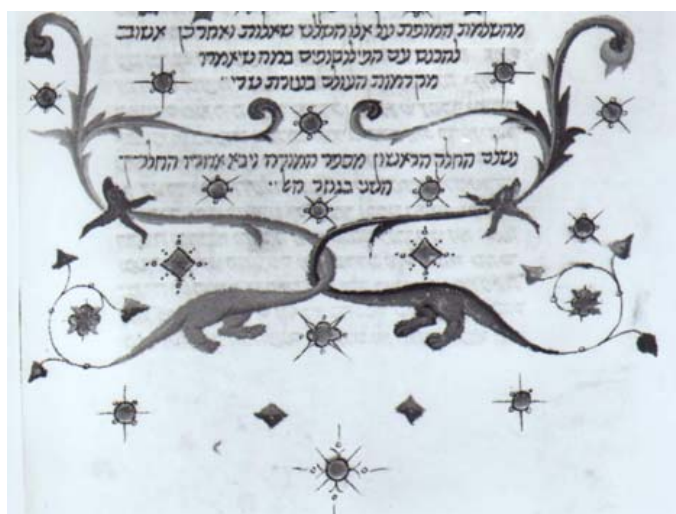 מהשלמת המופת על אלו השלש שאלות ואחר כן אשוב
להכנס עם הפילוסופים במה שיאמרו
מקדמות העולם בעזרת שדי
נשלם החלק הראשון מספר המורה ויבא אחריו החלק
השני בגזר הש״